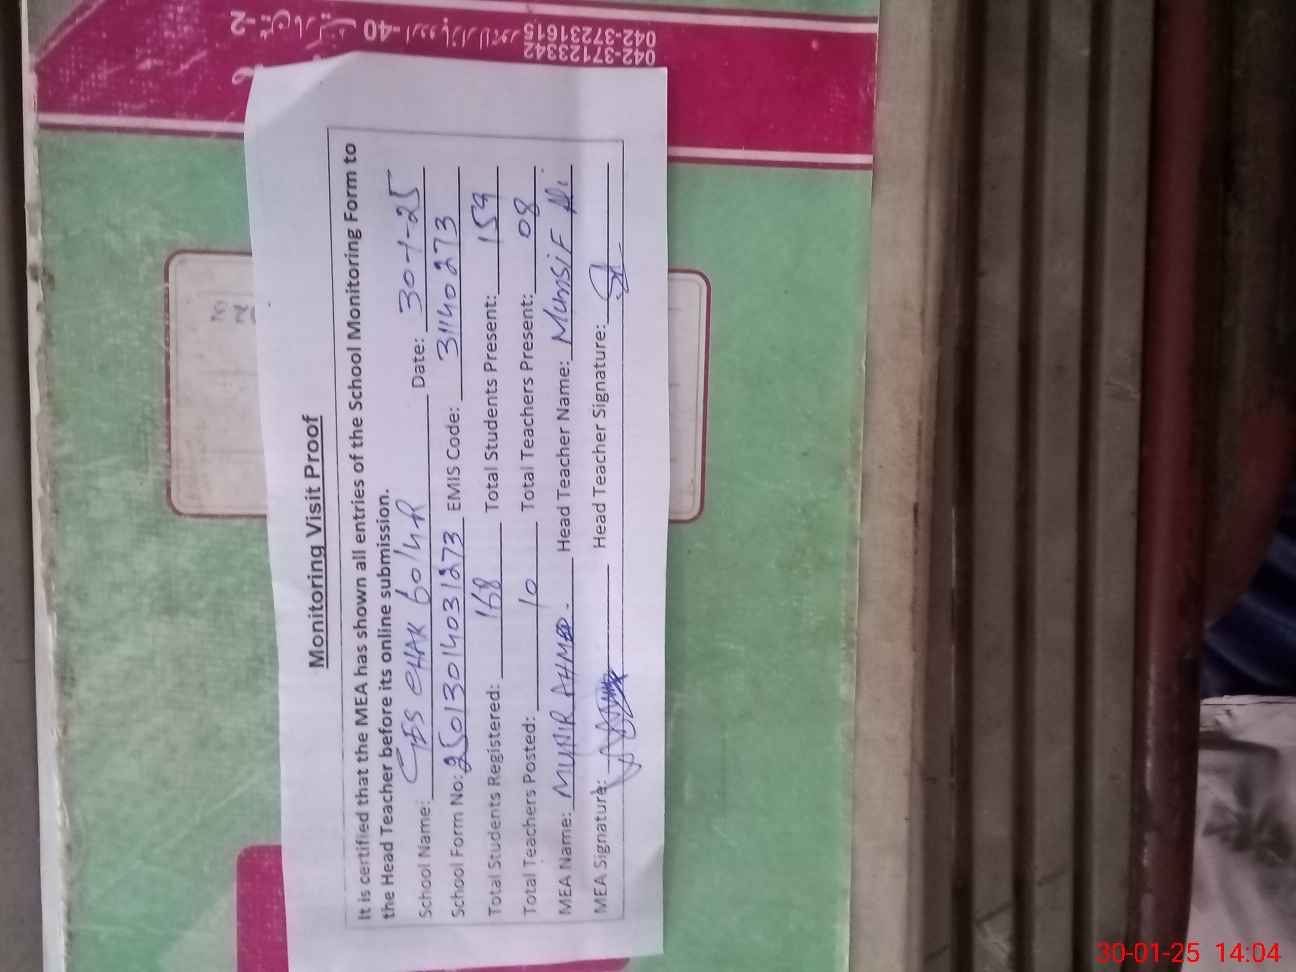 Monitoring Visit Proof
It is certified that the MEA has shown all entries of the School Monitoring Form to
the Head Teacher before its online submission.
School Name: GES CHAK 60/4-R Date: 30-1-25
School Form No: 25013014031273 EMIS Code: 31140273
Total Students Registered: 168 Total Students Present: 159
Total Teachers Posted: 10 Total Teachers Present: 08
MEA Name: MUNIR AHMED. Head Teacher Name: Munsif Ali
MEA Signature: Head Teacher Signature:
042-37123342
042-37231615
40-اردو بازار لاہور
2-
30-01-25 14:04